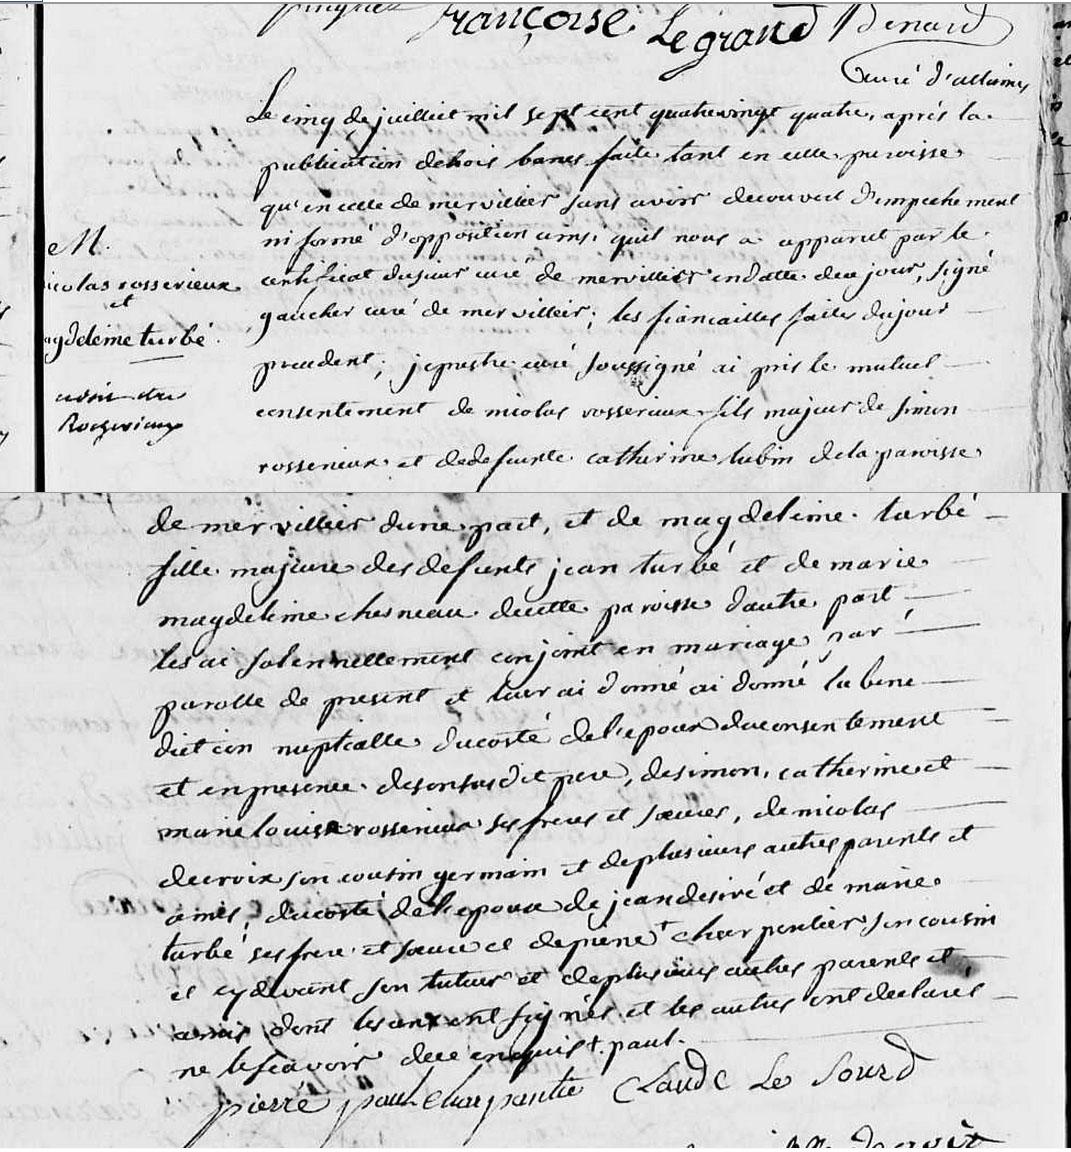 françoise Legrand Benard
curé d'allaines
Le cinq de juilliet mil sept cent quatrevingt quatre, après la
publication detrois bancs faite tant en cette paroisse
qu'en celle de mervillier sans avoir decouvert d'empechement
ni formé d'opposition ainsi quil nous a apparut par le
certificat dusieur curé de mervillier endatte de ce jour, signé
gaucher curé de mervilleir; les fiancailles faites dujour
precedent; je prestre curé soussigné ai pris le mutuel
consentement de nicolas rosserieux fils majeur de simon
rosserieux et de defeunte catherine lubin de la paroisse
M.
nicolas rosserieux
et
magdeleine turbé
de mervillier dune part, et de magdeleine turbé
fille majeure des defunts jean turbé et de marie
magdeleine chesneau de cette paroisse dautre part
les ai solennellement conjoint en mariage par
parolle de present et leur ai donné ai donné la bene
diction nuptealle du costé de l'epoux du consentement
et en presence de son susdit pere, de simon, catherine et
marie louise rosserieux ses freres et sœures, de nicolas
decroix son cousin germain et de plusieurs autres parents et
amis, du costé de l'epouse de jean desiré et de marie
turbé, ses frere et sœure et de pierre † charpentier son cousin
et cydevant son tuteur et de plusieurs autres parents et
amis dont les uns ont signés et les autres ont declarés
ne le scavoir de ce enquis † paul.
pierre paul charpantie Claude Le Sourd